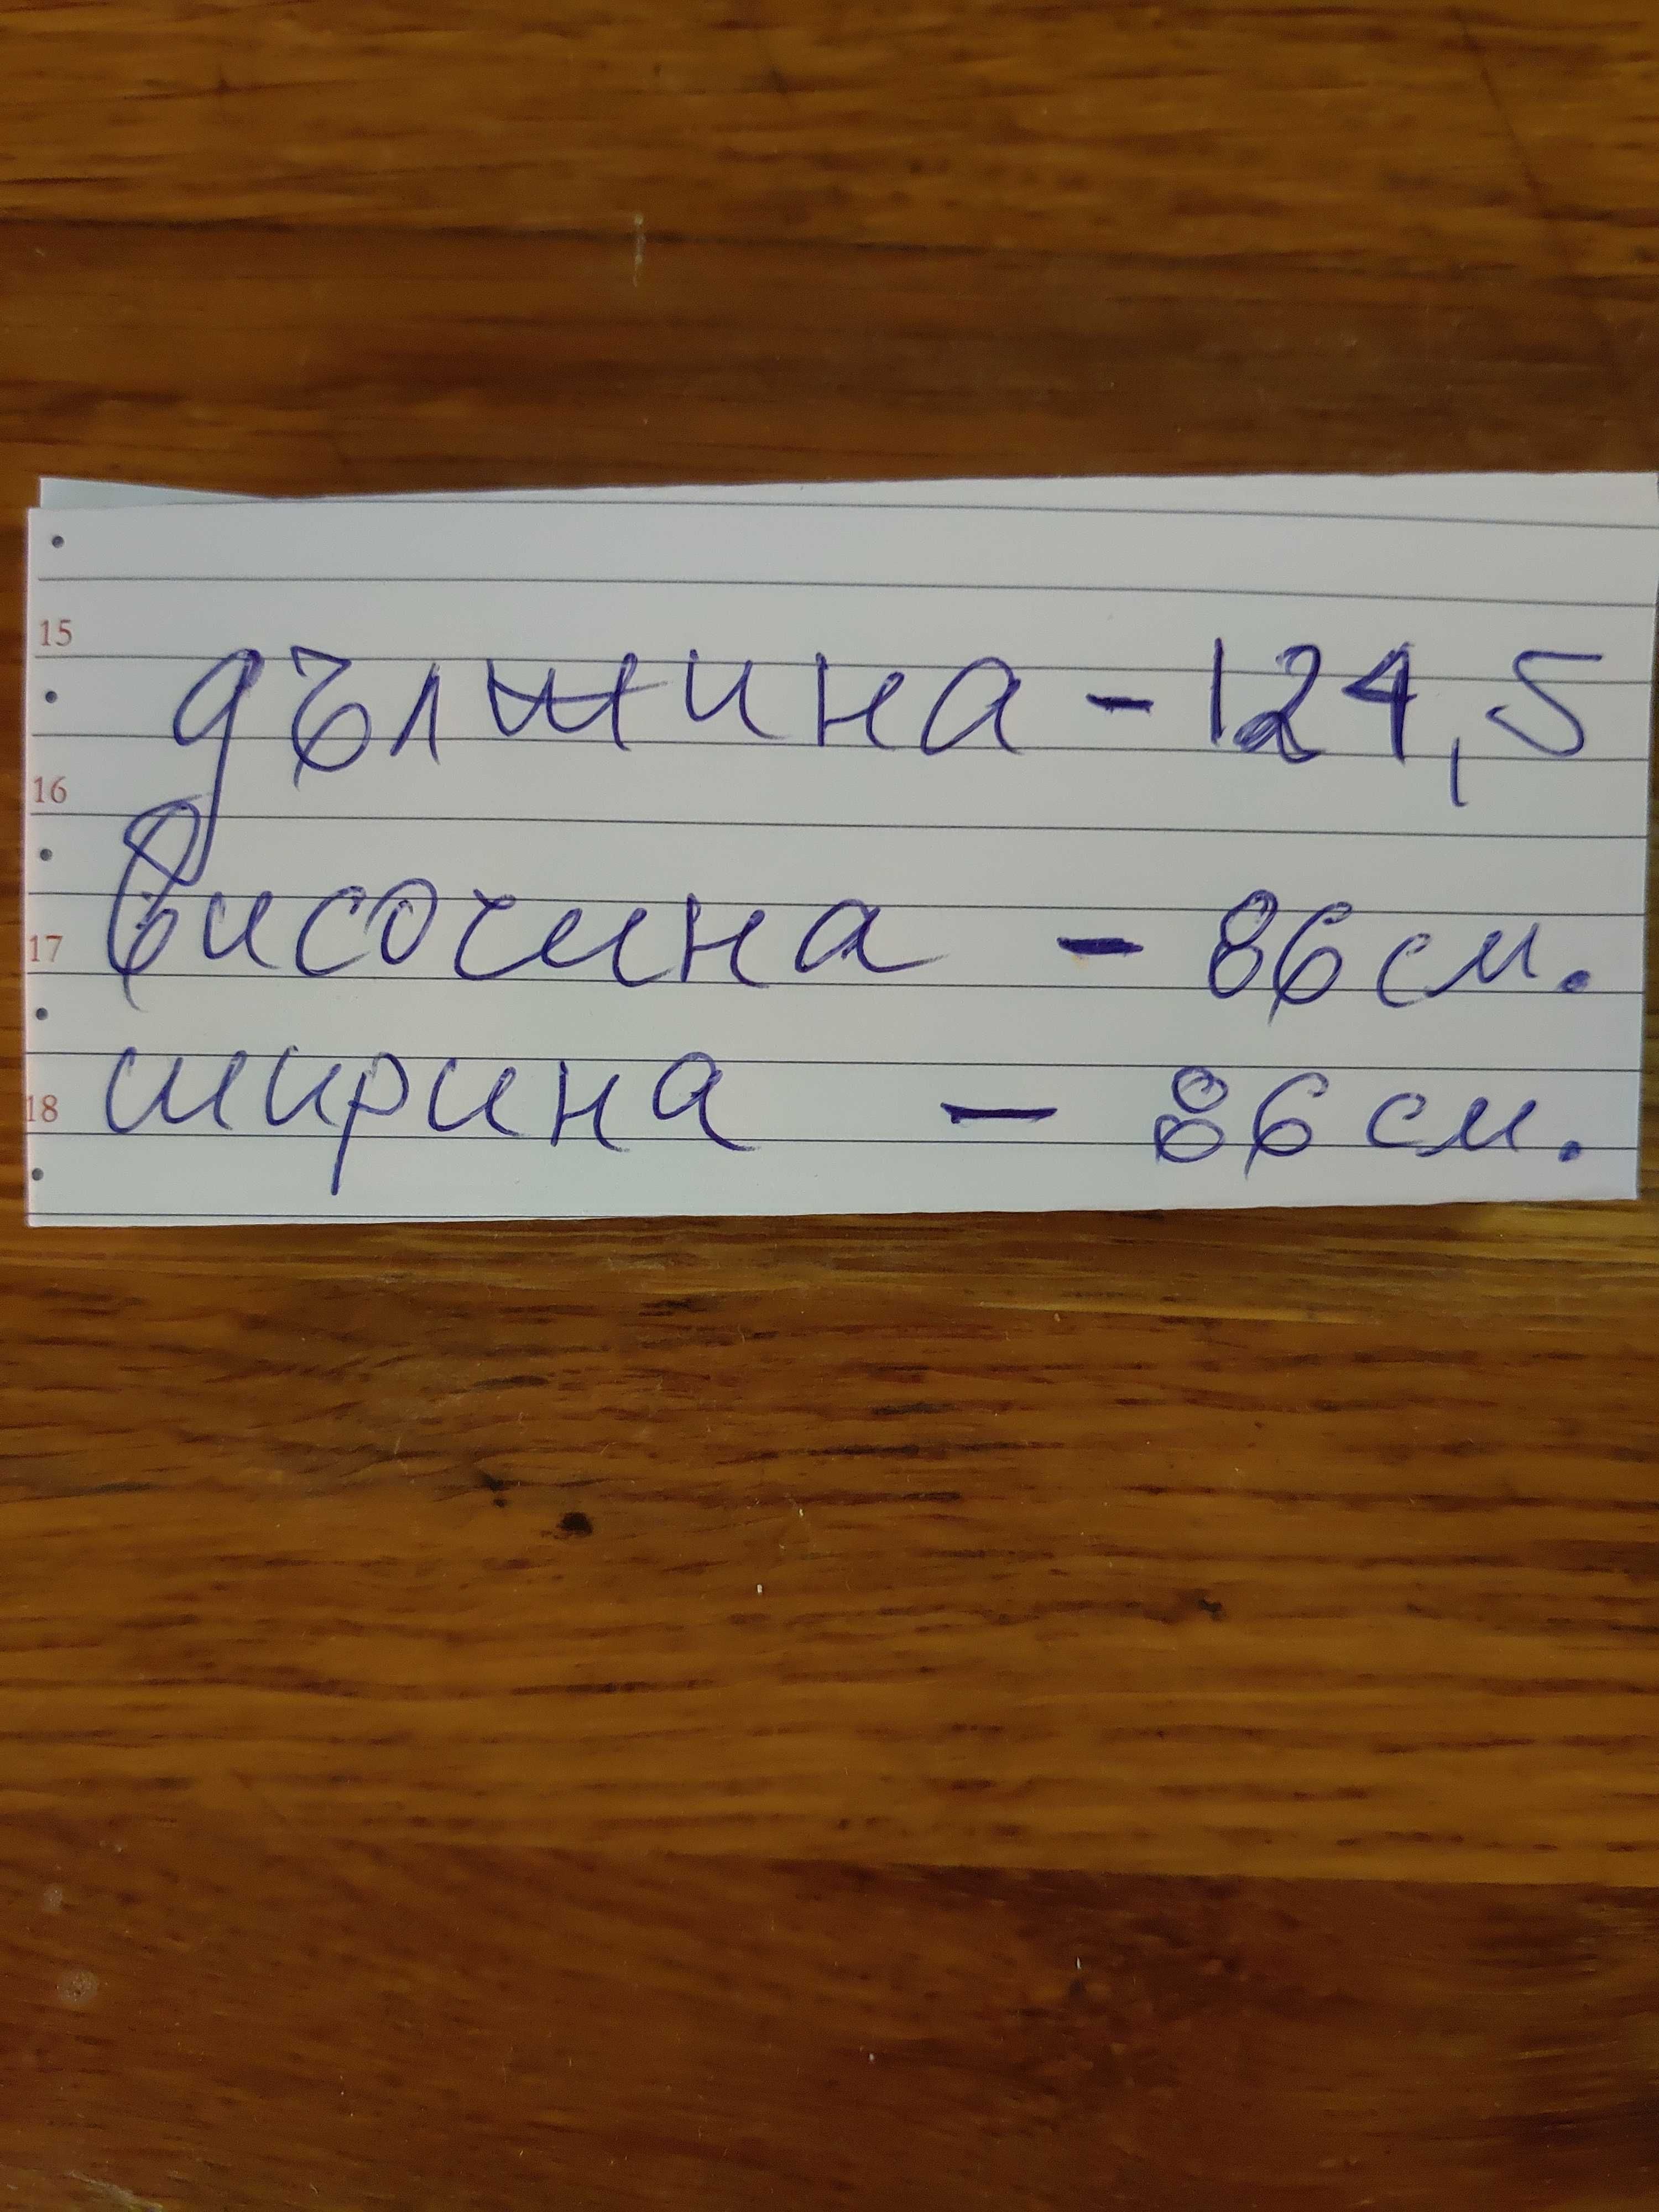 15
дължина - 124,5
16
височина - 86 см.
17
ширина - 86 см.
18